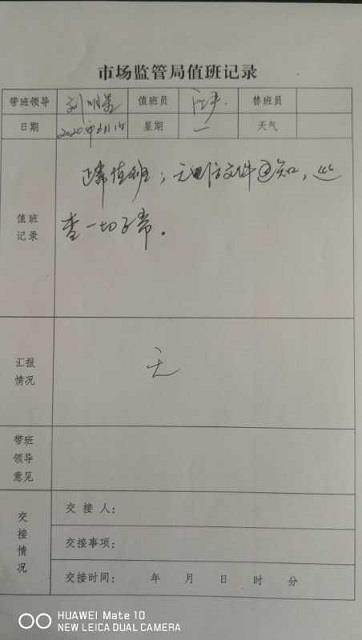 市场监管局值班记录
带班领导 刘明 值班员 替班员
日期 2020年 星期 一 天气
值班记录 正常值班；无电传文件通知，巡
查一切正常。
汇报情况 无
带班领导意见
交接情况 交接人：
交接事项：
交接时间： 年 月 日 时 分
HUAWEI Mate 10
NEW LEICA DUAL CAMERA